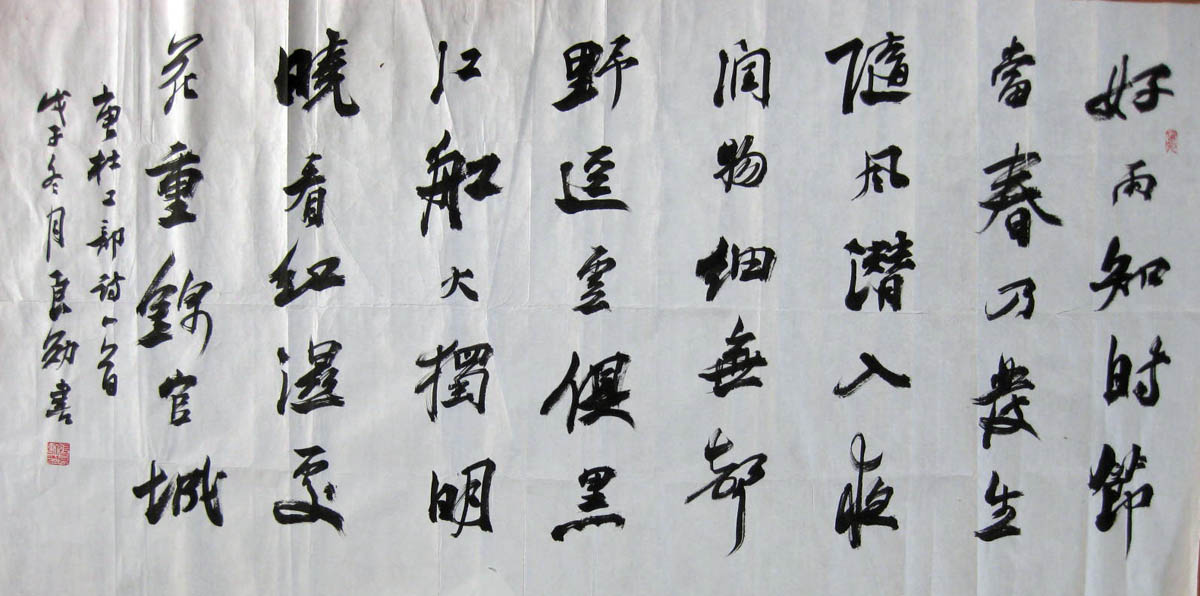 好雨知時節
當春乃發生
隨風潛入夜
潤物細無聲
野逕雲俱黑
江船火獨明
曉看紅濕處
花重錦官城
唐杜工部詩一首
戊子冬月良書